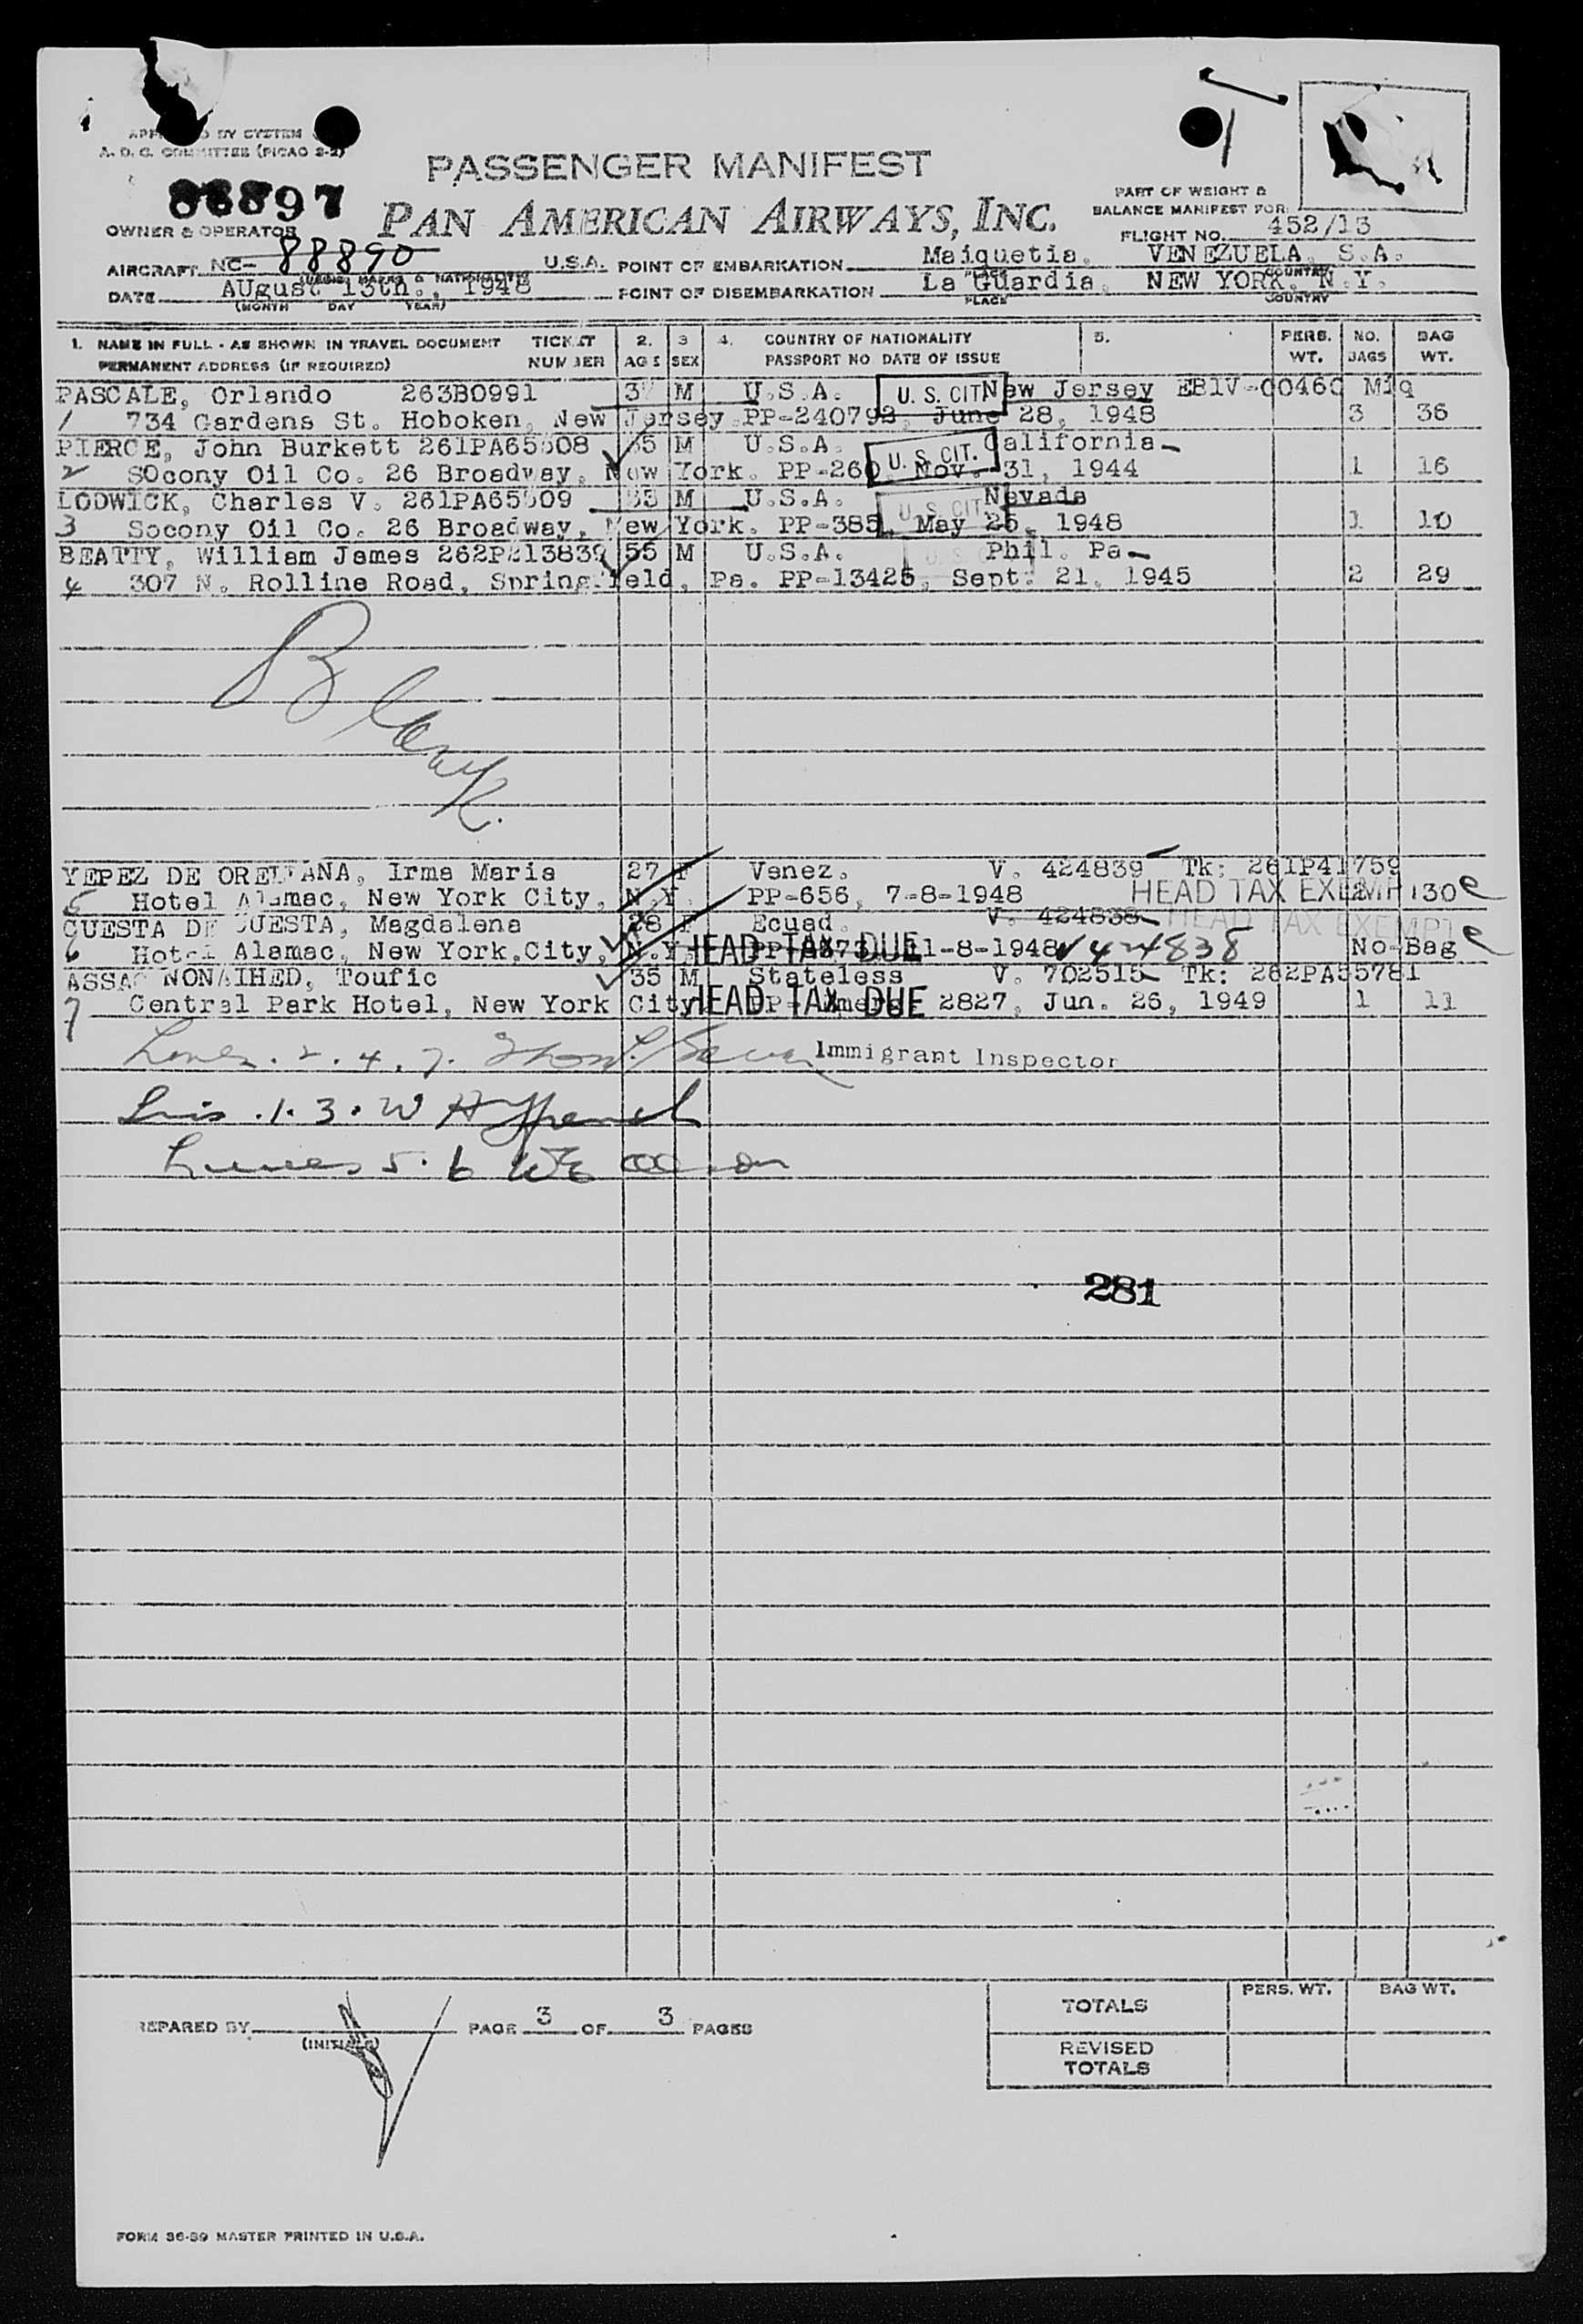 A. D. C. COMMITTEE (PICAO 2-2)
PASSENGER MANIFEST
88897
PAN AMERICAN AIRWAYS, INC.
OWNER & OPERATOR
PART OF WEIGHT &
BALANCE MANIFEST FOR
FLIGHT NO. 452/13
AIRCRAFT NC- 88890 U.S.A. POINT OF EMBARKATION Maiquetia, VENEZUELA, S.A.
PLACE COUNTRY
DATE AUgust 13th., 1948 POINT OF DISEMBARKATION La Guardia, NEW YORK, N.Y.
(MONTH DAY YEAR) PLACE COUNTRY
1. NAME IN FULL - AS SHOWN IN TRAVEL DOCUMENT TICKET 2. 3 4. COUNTRY OF NATIONALITY 5. PERS. NO. BAG
PERMANENT ADDRESS (IF REQUIRED) NUMBER AGE SEX PASSPORT NO DATE OF ISSUE WT. BAGS WT.
PASCALE, Orlando 263B0991 M U.S.A. U. S. CIT New Jersey EB1V-00460 Miq
1 734 Gardens St. Hoboken, New Jersey PP-240792, June 28, 1948 3 36
PIERCE, John Burkett M U.S.A. U. S. CIT. California
2 SOcony Oil Co. 26 Broadway, New York. PP-260, Nov. 31, 1944 1 16
LODWICK, Charles V. M U.S.A. U. S. CIT Nevada
3 Socony Oil Co. 26 Broadway, New York. PP-385, May 25, 1948 1 10
BEATTY, William James 55 M U.S.A. Phil. Pa
4 307 N. Rolling Road, Springfield, Pa. PP-13425, Sept. 21, 1945 2 29
Blank.
YEPEZ DE ORELLANA, Irma Maria 27 F Venez. V. 424839 Tk: 261P41759
5 Hotel Alamac, New York City, N.Y. PP-656, 7-8-1948 HEAD TAX EXEMPT 30 e
CUESTA DE CUESTA, Magdalena 28 F Ecuad. V. 424838 HEAD TAX EXEMPT
6 Hotel Alamac, New York City, N.Y. HEAD TAX DUE 11-8-1948 V 424838 No Bag e
NONAIHED, Toufic 35 M Stateless V. 702515 Tk: 262PA55781
7 Central Park Hotel, New York City HEAD TAX DUE 2827, Jun. 26, 1949 1 11
2. 4. 7. Immigrant Inspector
1. 3.
Lines 5. 6
281
PREPARED BY
(INITIALS)
PAGE 3 OF 3 PAGES
PERS. WT. BAG WT.
TOTALS
REVISED
TOTALS
FORM 36-39 MASTER PRINTED IN U.S.A.